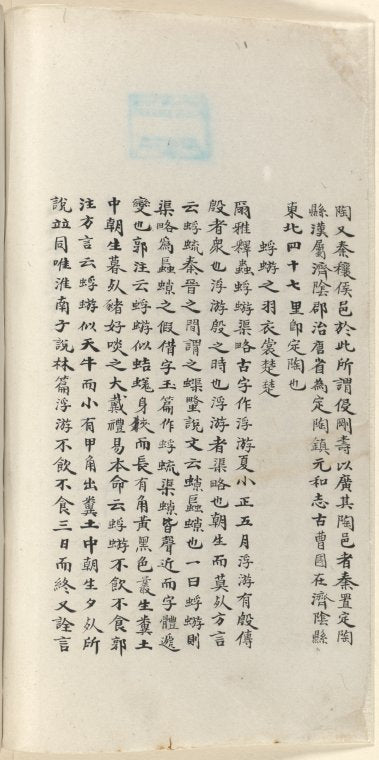 陶又秦穰侯邑於此所謂侵剛壽以廣其陶邑者秦置定陶
縣漢屬濟陰郡治唐省為定陶鎮元和志古曹國在濟陰縣
東北四十七里即定陶也
蜉蝣之羽衣裳楚楚
爾雅釋蟲蜉蝣渠略古字作浮游夏小正五月浮游有殷傳
殷者衆也浮游殷之時也浮游者渠略也朝生而莫死方言
云蜉𧍡秦晉之間謂之蟝䗁說文云螶蟁螶也一曰蜉游則
渠略為螶之假借字玉篇作蜉𧍡渠螶皆聲近而字體遞
變也郭注云蜉蝣似蛣蜣身狹而長有角黃黑色叢生糞土
中朝生暮死豬好啖之大戴禮易本命云蜉蝣不飲不食郭
注方言云蜉蝣似天牛而小有甲角出糞土中朝生夕死所
說竝同唯淮南子說林篇浮游不飲不食三日而終又詮言